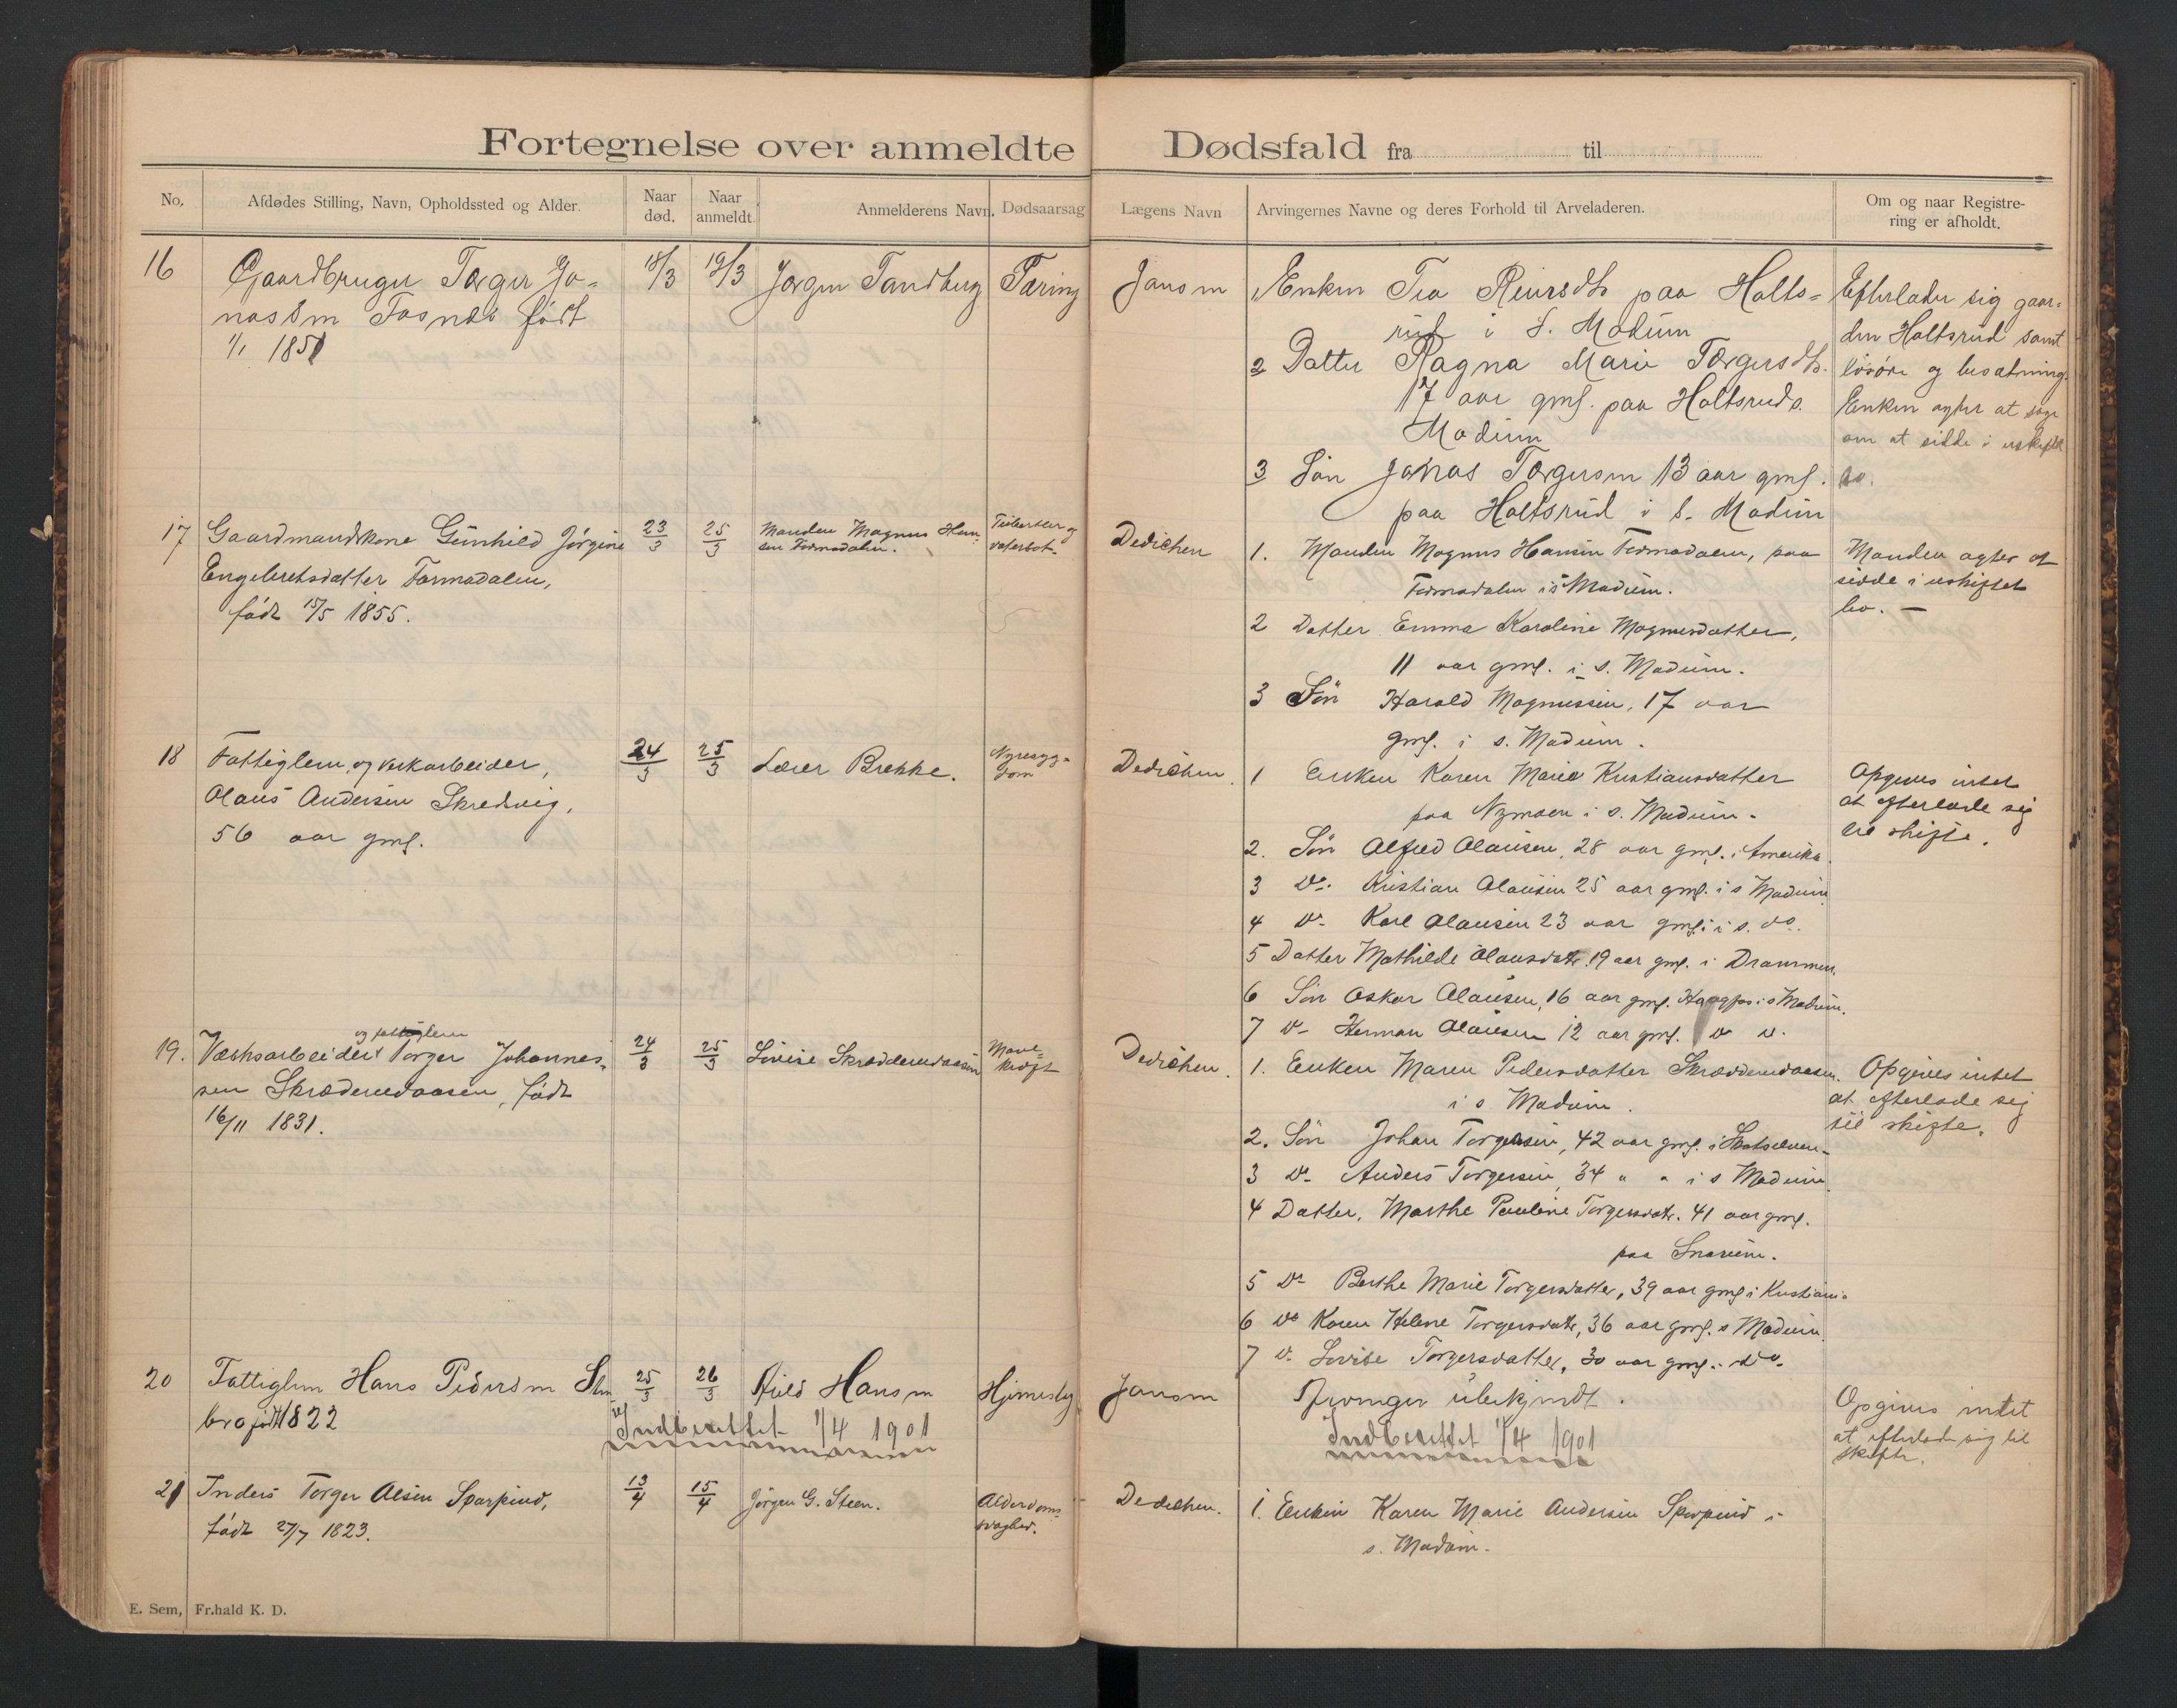 Fortegnelse over anmeldte Dødsfald fra til
No. Afdødes Stilling, Navn, Opholdssted og Alder. Naar død. Naar anmeldt. Anmelderens Navn. Dødsaarsag Lægens Navn Arvingernes Navne og deres Forhold til Arveladeren. Om og naar Registrering er afholdt.
16 Gaardbruger Torger Jo-
nassen Fosnes født
1/1 1851
18/3 19/3 Jørgen Tandberg Tæring
Jansen
1 Enken Tea Reiersdtr paa Holts-
rud i S. Modum
2 Datter Ragna Marie Torgersdtr.
17 aar gml. paa Holtsrud s.
Modum
3 Søn Jonas Torgersen 13 aar gml.
paa Holtsrud i S. Modum
Efterlader sig gaar-
den Holtsrud samt
løsøre og besætning.
Enken agter at søge
om at sidde i uskiftet
bo.
17 Gaardmandskone Gunhild Jørgine
Engebretsdatter Formodalen,
født 15/5 1855.
23/3 25/3 Manden Magnus Han-
sen Formodalen.
Tuberkler og
vatersot.
Dedichen
1. Manden Magnus Hansen Formodalen, paa
Formodalen i s Modum.
2 Datter Emma Karoline Magnusdatter,
11 aar gml. i s. Modum.
3 Søn Harald Magnussen, 17 aar
gml. i s. Modum.
Manden agter at
sidde i uskiftet
bo. —
18 Fattiglem og verksarbeider,
Olaus Andersen Skredvig,
56 aar gml.
24/3 25/3 Lærer Brekke. Nyresyg-
dom
Dedichen.
1 Enken Karen Marie Kristiansdatter
paa Nymoen i s. Modum.
2. Søn Alfred Olausen, 28 aar gml. i Amerika.
3 Do. Kristian Olausen 25 aar gml. i s Modum
4 Do Karl Olausen 23 aar gml. i s. do.
5 Datter Mathilde Olausdatr. 19 aar gml. i Drammen.
6 Søn Oskar Olausen, 16 aar gml. i s Modum.
7 Do Herman Olausen 12 aar gml. do do.
Opgives intet
at efterlade sig
til skifte.
og fattiglem
19. Værksarbeider Torger Johannes-
sen Skrædderudaasen, født
16/11 1831.
24/3 25/3 Lovise Skrædderudaasen Mave-
kræft
Dedichen.
1. Enken Maren Pedersdatter Skrædderudaasen.
i s Modum.
2. Søn Johan Torgersen, 42 aar gml. i
3 Do Anders Torgersen, 34 " " i s Modum.
4 Datter, Marthe Pauline Torgersdatr. 41 aar gml.
paa Snarum.
5 Do Berthe Marie Torgersdatter, 39 aar gml i Kristiania
6 Do Karen Helene Torgersdatr, 36 aar gml. s Modum.
7 Do Lovise Torgersdatter, 30 aar gml. do.
Opgives intet
at efterlade sig
til skifte.
20 Fattiglem Hans Pedersen Sten-
bro født 1822
25/3 26/3 Hansen Hjernesly
Jansen
Arvinger ubekjendt.
Opgives intet
at efterlade sig til
skifte.
Indberettet 1/4 1901
Indberettet 1/4 1901
21 Inders Torger Olsen Sparpind,
født 27/7 1823.
13/4 15/4 Jørgen G. Steen. Alderdoms-
svaghed.
Dedichen.
1. Enken Karen Marie Andersen Sparpind i
s. Modum.
E. Sem, Fr.hald K. D.